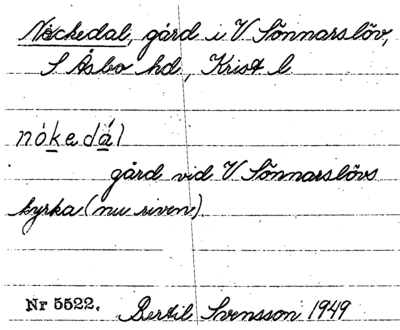 Nöckedal, gård i V Sönnarslöv,
S Åsbo hd, Krist l
nókedál
gård vid V Sönnarslövs
kyrka (nu riven).
Nr 5522. Bertil Svensson 1949